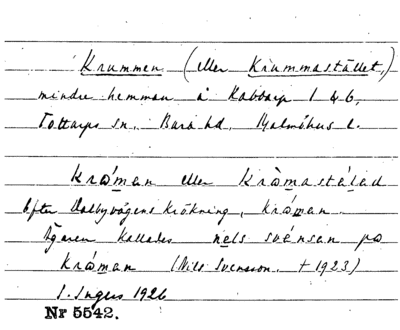 Krummen (eller Krummastället,)
mindre hemman å Kabbarp 1 & 6,
Tottarps sn, Bara hd, Malmöhus l.
Krám̱an eller Kràm̱astáḻad
Efter Dalbyvägens krökning, krám̱an.
Ägaren kallades ṉels svénsan pɒ
Krám̱an (Nils Svensson. † 1923)
I. Ingers 1926
Nr 5542.